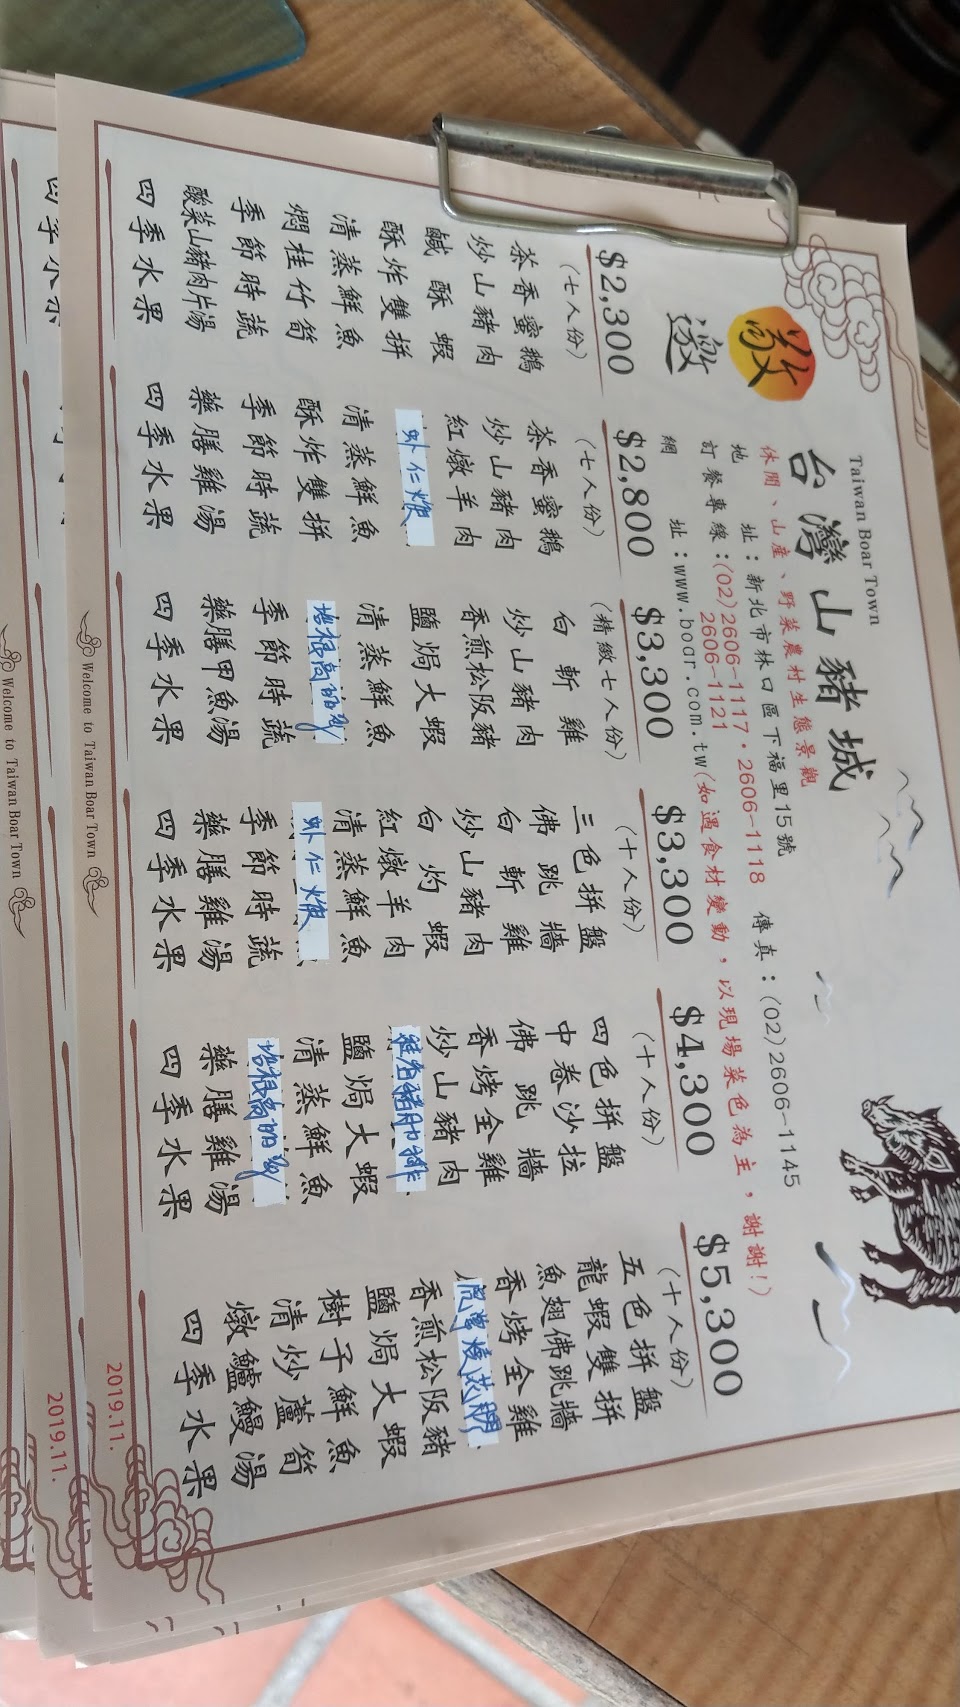 敬邀
Taiwan Boar Town
台灣山豬城
休閒、山產、野菜農村生態景觀
地　址：新北市林口區下福里15號　傳真：(02)2606-1145
訂餐專線：(02)2606-1117・2606-1118
2606-1121
網　址：www.boar.com.tw(如遇食材變動，以現場菜色為主，謝謝！)
$2,300
(七人份)
茶香蜜鵝
炒山豬肉
鹹酥蝦
酥炸雙拼
清蒸鮮魚
燜桂竹筍
季節時蔬
酸菜山豬肉片湯
四季水果
$2,800
(七人份)
茶香蜜鵝
炒山豬肉
紅燉羊肉
清蒸鮮魚
酥炸雙拼
季節時蔬
藥膳雞湯
四季水果
$3,300
(精緻七人份)
白斬雞
炒山豬肉
香煎松阪豬
鹽焗大蝦
清蒸鮮魚
季節時蔬
藥膳甲魚湯
四季水果
$3,300
(十人份)
三色拼盤
佛跳牆
白斬雞
炒山豬肉
白灼蝦
紅燉羊肉
清蒸鮮魚
季節時蔬
藥膳雞湯
四季水果
$4,300
(十人份)
四色拼盤
中卷沙拉
佛跳牆
香烤全雞
炒山豬肉
鹽焗大蝦
清蒸鮮魚
藥膳雞湯
四季水果
$5,300
(十人份)
五色拼盤
龍蝦雙拼
魚翅佛跳牆
香烤全雞
香煎松阪豬
鹽焗大蝦
樹子鮮魚
清炒蘆筍
燉鱸鰻湯
四季水果
Welcome to Taiwan Boar Town
2019.11.
Welcome to Taiwan Boar Town
2019.11.